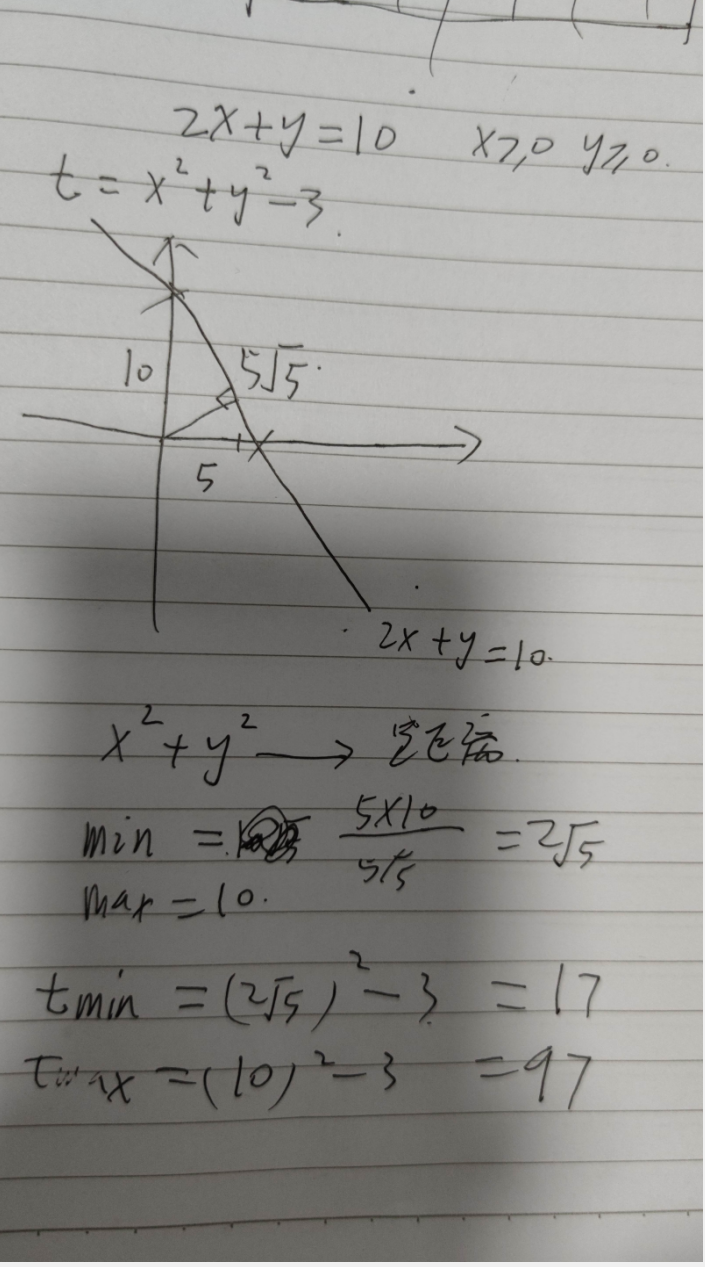 2x+y=10 x≥0 y≥0.
t=x²+y²-3.
10
5√5
5
2x+y=10.
x²+y² →
min = 5×10/5√5 = 2√5
max=10.
tmin =(2√5)²-3 =17
tmax =(10)²-3 =97